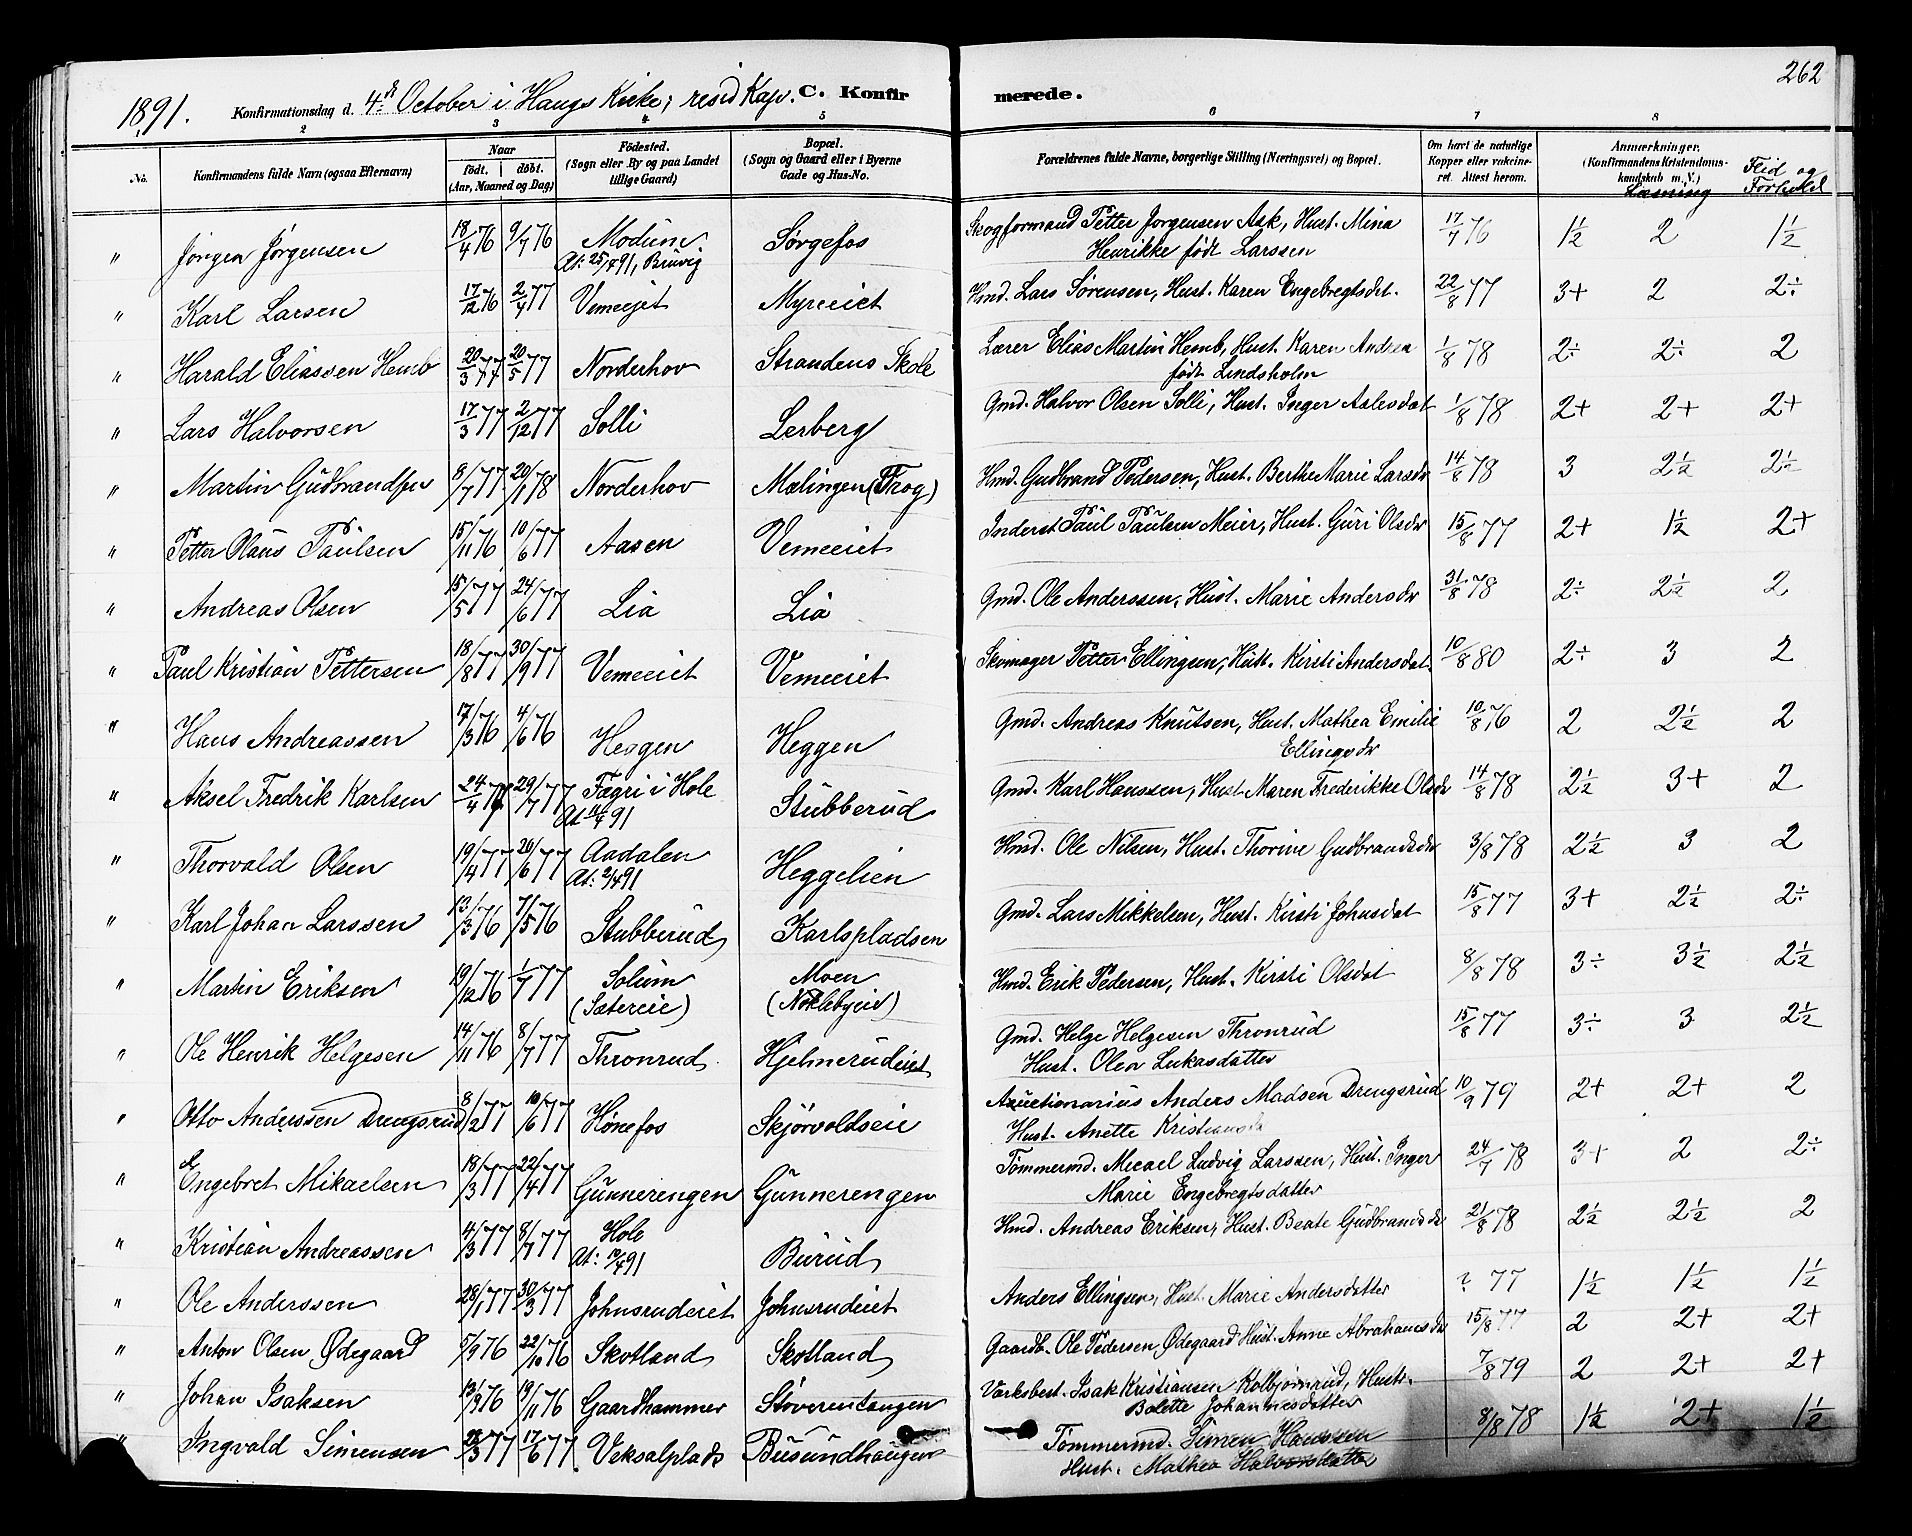 262
1891. Konfirmationsdag d. 4de October i Haugs Kirke; resid Kap. C. Konfirmerede.
2 3 4 5 6 7 8
No. Konfirmandens fulde Navn (ogsaa Efternavn) Naar født. døbt. (Aar, Maaned og Dag) Fødested. (Sogn eller By og paa Landet tillige Gaard) Bopæl. (Sogn og Gaard eller i Byerne Gade og Hus-No. Forældrenes fulde Navne, borgerlige Stilling (Næringsvei) og Bopæl. Om havt de naturlige Kopper eller vakcineret. Attest herom. Anmærkninger. (Konfirmandens Kristendomskundskab m. V.) Læsning Flid og Forhold
" Jørgen Jørgensen 18/4 76 9/7 76 Modum. At: 25/4 91, Bruvig Sørgefos Skogformand Petter Jørgensen Ask, Hust. Mina Henrikke født Larssen 17/7 76 1½ 2 1½
" Karl Larsen 17/12 76 2/4 77 Vemeejet Myreeiet Hmd. Lars Sørensen, Hust. Karen Engebregtsdat. 22/8 77 3+ 2 2÷
" Harald Eliassen Hemb 20/3 77 20/5 77 Norderhov Strandens Skole Lærer Elias Martin Hemb, Hust. Karen Andrea født Lindsholm 1/8 78 2÷ 2÷ 2
" Lars Halvorsen 17/3 77 2/12 77 Solli Lerberg Gmd. Halvor Olsen Solli, Hust. Inger Aslesdat 1/8 78 2+ 2+ 2+
" Martin Gudbrandsen 8/7 77 20/1 78 Norderhov Mælingen (Frog) Hmd. Gudbrand Pedersen, Hust. Berthe Marie Larsdr 14/8 78 3 2½ 2½
" Petter Olaus Paulsen 15/11 76 10/6 77 Aasen Vemeeiet Inderst Paul Paulsen Meier, Hust. Guri Olsdr 15/8 77 2+ 1½ 2+
" Andreas Olsen 15/5 77 24/6 77 Lia Lia Gmd. Ole Anderssen, Hust. Marie Andersdr 31/8 78 2÷ 2½ 2
" Paul Kristian Pettersen 18/8 77 30/9 77 Vemeeiet Vemeeiet Skomager Petter Ellingsen, Hust. Kirsti Andersdat. 10/8 80 2÷ 3 2
" Hans Andreassen 17/3 76 4/6 76 Heggen Heggen Gmd. Andreas Knutsen, Hust. Mathea Emilie Ellingsdr 10/8 76 2 2½ 2
" Aksel Fredrik Karlsen 24/4 77 29/7 77 Fægri i Hole At 14/4 91 Stubberud Gmd. Karl Hanssen, Hust. Maren Frederikke Olsdr 14/8 78 2½ 3+ 2
" Thorvald Olsen 19/4 77 20/6 77 Aadalen At: 2/4 91 Heggelien Hmd. Ole Nilsen, Hust. Thorine Gudbrandsdr 3/8 78 2½ 3 2
" Karl Johan Larssen 13/3 76 7/5 76 Stubberud Karlspladsen Gmd. Lars Mikkelsen, Hust. Kirsti Johnsdat 15/8 77 3+ 2½ 2÷
" Martin Eriksen 19/12 76 1/7 77 Solum (Sætereie) Moen (Noklebyeie) Hmd. Erik Pedersen, Hust. Kirsti Olsdat 8/8 78 3÷ 3½ 2½
" Ole Henrik Helgesen 14/11 76 8/7 77 Thronrud Hjelmerudeiet Gmd. Helge Helgesen Thronrud Hust. Olea Lukasdatter 15/8 77 3÷ 3 2½
" Otto Anderssen Drengsrud 8/2 77 10/6 77 Hønefos Skjørvoldseie Auctionarius Anders Madsen Drengsrud Hust. Anette Kristiansdr 10/9 79 2+ 2+ 2
" Engebret Mikaelsen 18/3 77 22/4 77 Gunnerengen Gunnerengen Tømmermd. Micael Ludvig Larssen, Hust. Inger Marie Engebregtsdatter 24/7 78 3+ 2 2÷
" Kristian Andreassen 4/3 77 8/7 77 Hole At: 10/4 91 Burud Hmd. Andreas Eriksen, Hust. Beate Gudbrandsdr 21/8 78 2½ 2½ 2
" Ole Anderssen 28/1 77 30/3 77 Johnsrudeiet Johnsrudeiet Anders Ellingsen, Hust. Marie Andersdatter ? 77 1½ 1½ 1½
" Anton Olsen Ødegaard 5/9 76 22/10 76 Skotland Skotland Gaardb. Ole Pedersen Ødegaard Hust. Anne Abrahamsdr 15/8 77 2 2+ 2+
" Johan Isaksen 13/9 76 19/11 76 Gaardhammer Støverentangen Værksbest. Isak Kristiansen Kolbjørnrud, Hustr. Bolette Johannesdatter 7/8 79 2 2+ 2+
" Ingvald Simensen 28/3 77 17/6 77 Veksalplads Busundhaugen Tømmermd. Simen Hanssen Hust. Mathea Halvorsdatter 8/8 78 1½ 2+ 1½